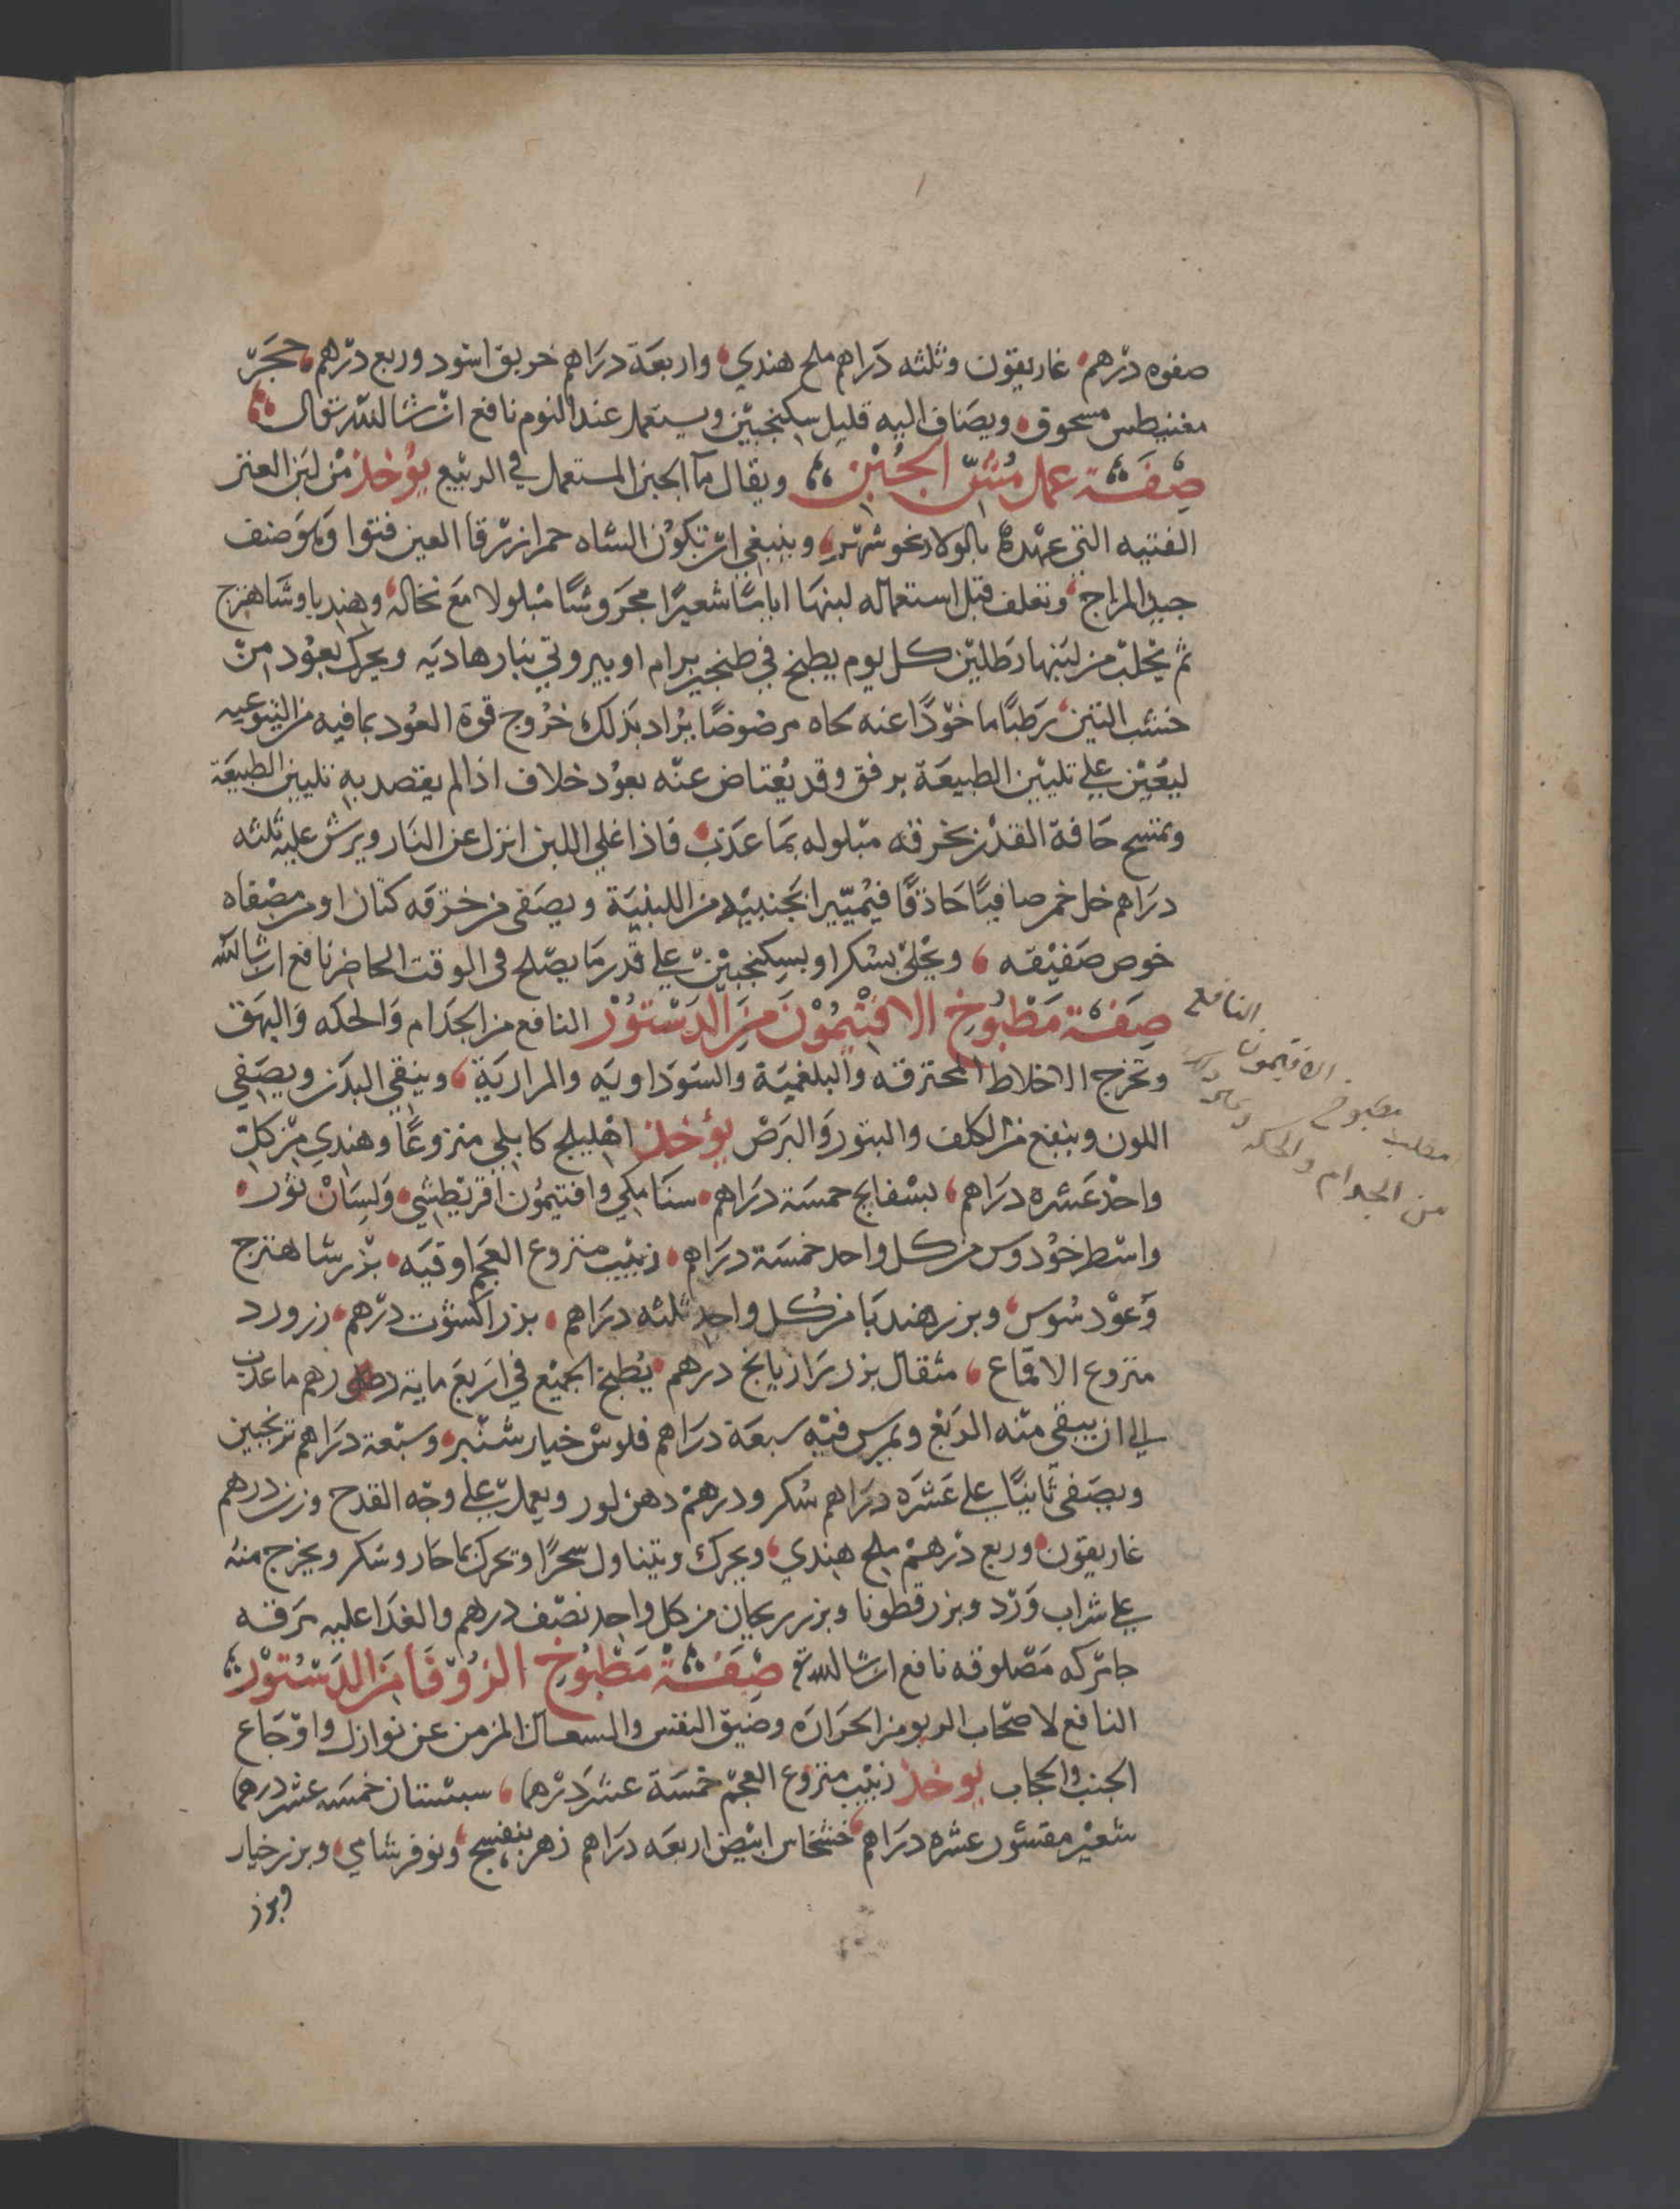 صفوه درهم غاريقون وثلثه دراهم ملح هندي واربعة دراهم خربق اسود وربع درهم حجر
مغنيطس مسحوق ويضاف اليه قليل سكنجبين ويستعمل عند النوم نافع ان شا الله تعالى
صفة عمل مش الجبن ويقال ما الجبن المستعمل في الربيع يؤخذ من لبن العنز
الفتيه التي عهدها بالولاد نحو شهر وينبغي ان تكون الشاه حمرا زرقا العين
جيد المزاج وتعلف قبل استعماله لبنها اياما شعيرا مجروشا مبلولا مع نخاله وهندبا وشاهترج
ثم يحلب من لبنها رطلين كل يوم يطبخ في طنجير برام او بيروتي بنار هاديه ويحرك بعود من
خشب التين رطبا ماخوذا عنه لحاه مرضوضا يراد بذلك خروج قوة العود بما فيه من اليتوعيه
ليعين علي تليين الطبيعة برفق وقد يعتاض عنه بعود خلاف اذا لم يقصد به تليين الطبيعة
وتمسح حافة القدر بخرقه مبلوله بما عذب فاذا غلي اللبن انزل عن النار ويرش عليه ثلثه
دراهم خل خمر صافيا حاذقا فيميز الجبنيه من اللبنية ويصفي من خرقه كتان او من مصفاه
خوص صفيقه ويحلي بسكر او بسكنجبين علي قدر ما يصلح في الوقت الحاضر نافع ان شا الله
صفة مطبوخ الافتيمون من الدستور النافع من الجذام والحكه والبهق
وتخرج الاخلاط المحترقه والبلغمية والسوداويه والمرارية وينقي البدن ويصفي
اللون وينفع من الكلف والبثور والبرص يؤخذ اهليلج كابلي منزوعا وهندي من كل
واحد عشره دراهم بسفايج خمسة دراهم سنا مكي وافتيمون اقريطشي ولسان ثور
واسطوخودوس من كل واحد خمسة دراهم زبيب منزوع العجم اوقيه بزر شاهترج
وعود سوس وبزر هندبا من كل واحد ثلثه دراهم بزر اكشوت درهم زر ورد
منزوع الاقماع مثقال بزر رازيانج درهم يطبخ الجميع في اربع ماية درهم ما عذب
الي ان يبقي منه الربع ويمرس فيه سبعة دراهم فلوس خيار شنبر وسبعة دراهم ترنجبين
ويصفي ثانيا علي عشره دراهم سكر ودرهم دهن لوز ويعمل علي وجه القدح وزن درهم
غاريقون وربع درهم ملح هندي ويحرك ويتناول سحرا وتحرك بما حار وسكر ويخرج منه
علي شراب ورد وبزر قطونا وبزر ريحان من كل واحد نصف درهم والغدا عليه مرقه
مصلوقه نافع ان شا الله تع صفة مطبوخ الزوفا من الدستور
النافع لاصحاب الربو من الحراره وضيق النفس والسعال المزمن عن نوازل واوجاع
الجنب والحجاب يوخذ زبيب منزوع العجم خمسة عشر درهما سبستان خمسه عشر درهما
شعير مقشور عشره دراهم خشخاش ابيض اربعه دراهم زهر بنفسج ونوفر شامي وبزر خيار
وبزر
النافع
الافتيمون
مطلب مطبوخ
والحكه
من الجذام